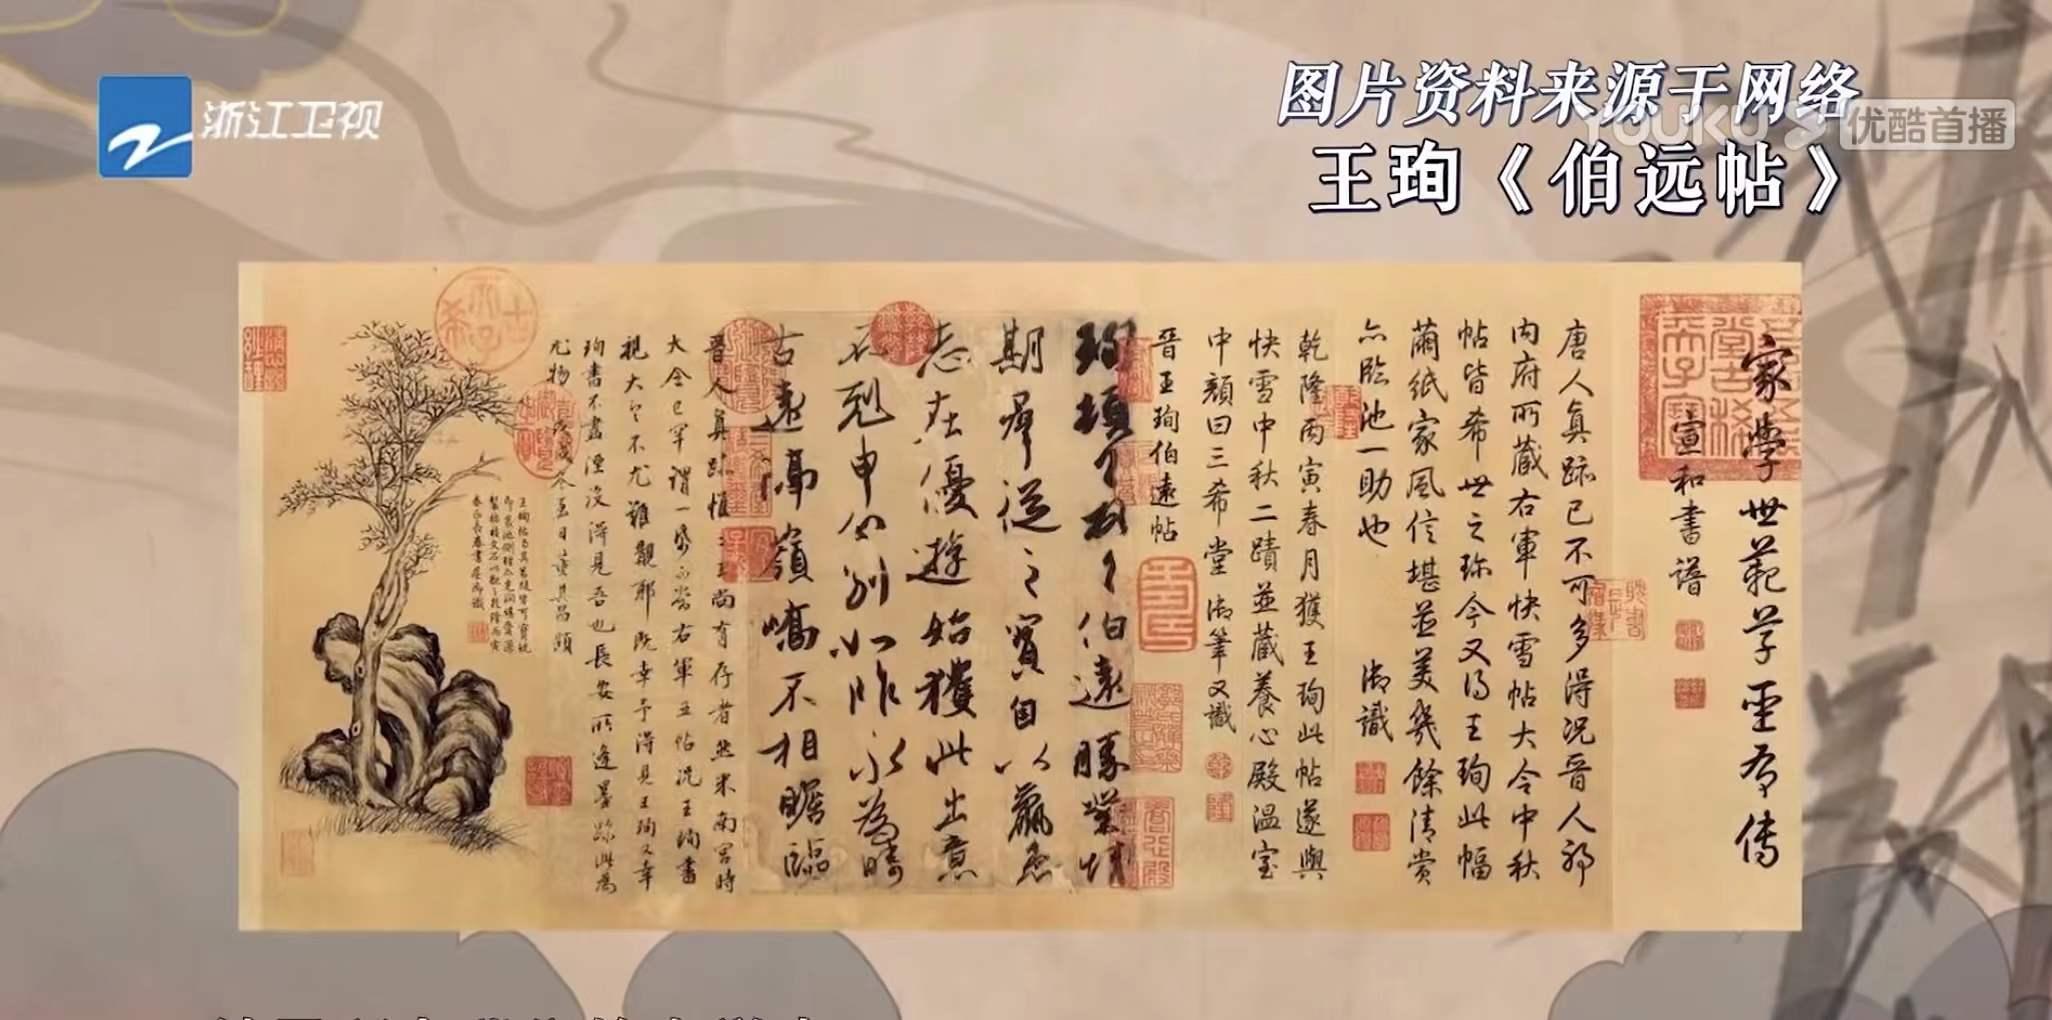 浙江卫视
图片资料来源于网络
YOUKU 优酷首播
王珣《伯远帖》
家學世範草聖有傳
宣和書譜
唐人真跡已不可多得况晉人耶
内府所藏右軍快雪帖大令中秋
帖皆希世之珍今又得王珣此幅
繭紙家風信堪並美幾餘清賞
亦臨池一助也 御識
乾隆丙寅春月獲王珣此帖遂與
快雪中秋二蹟並藏養心殿温室
中顔曰三希堂 御筆又識
晉王珣伯遠帖
珣頓首頓首伯遠勝業情
期羣從之寶自以羸患
志在優遊始獲此出意
不剋申分别如昨永為疇
古遠隔嶺嶠不相瞻臨
晉人真跡惟二王尚有存者然米南宮時
大令已罕謂一紙可當右軍五帖况王珣書
視大令不尤難覯耶既幸予得見王珣又幸
珣書不盡湮没得見吾也長安所逢墨跡此為
尤物 戊戌冬至日董其昌題